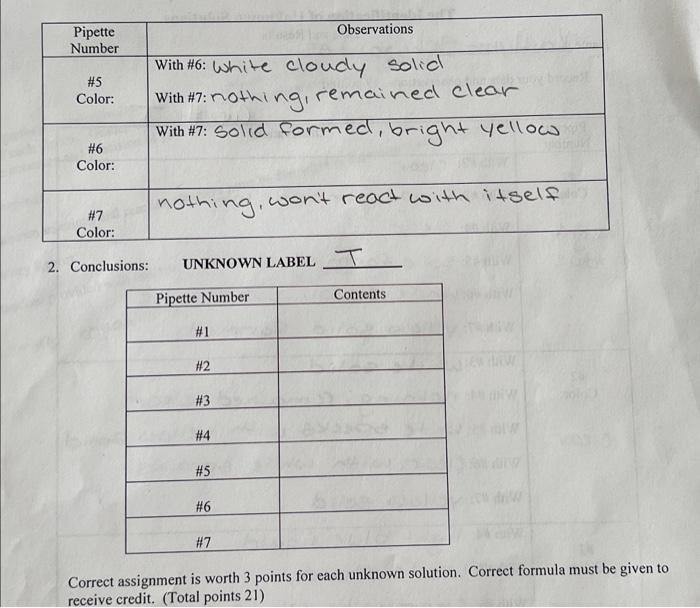 Pipette Number
Observations
#5
Color:
With #6: white cloudy solid
With #7: nothing, remained clear
#6
Color:
With #7: solid formed, bright yellow
#7
Color:
nothing, won't react with itself
2. Conclusions: UNKNOWN LABEL T
Pipette Number Contents
#1
#2
#3
#4
#5
#6
#7
Correct assignment is worth 3 points for each unknown solution. Correct formula must be given to
receive credit. (Total points 21)